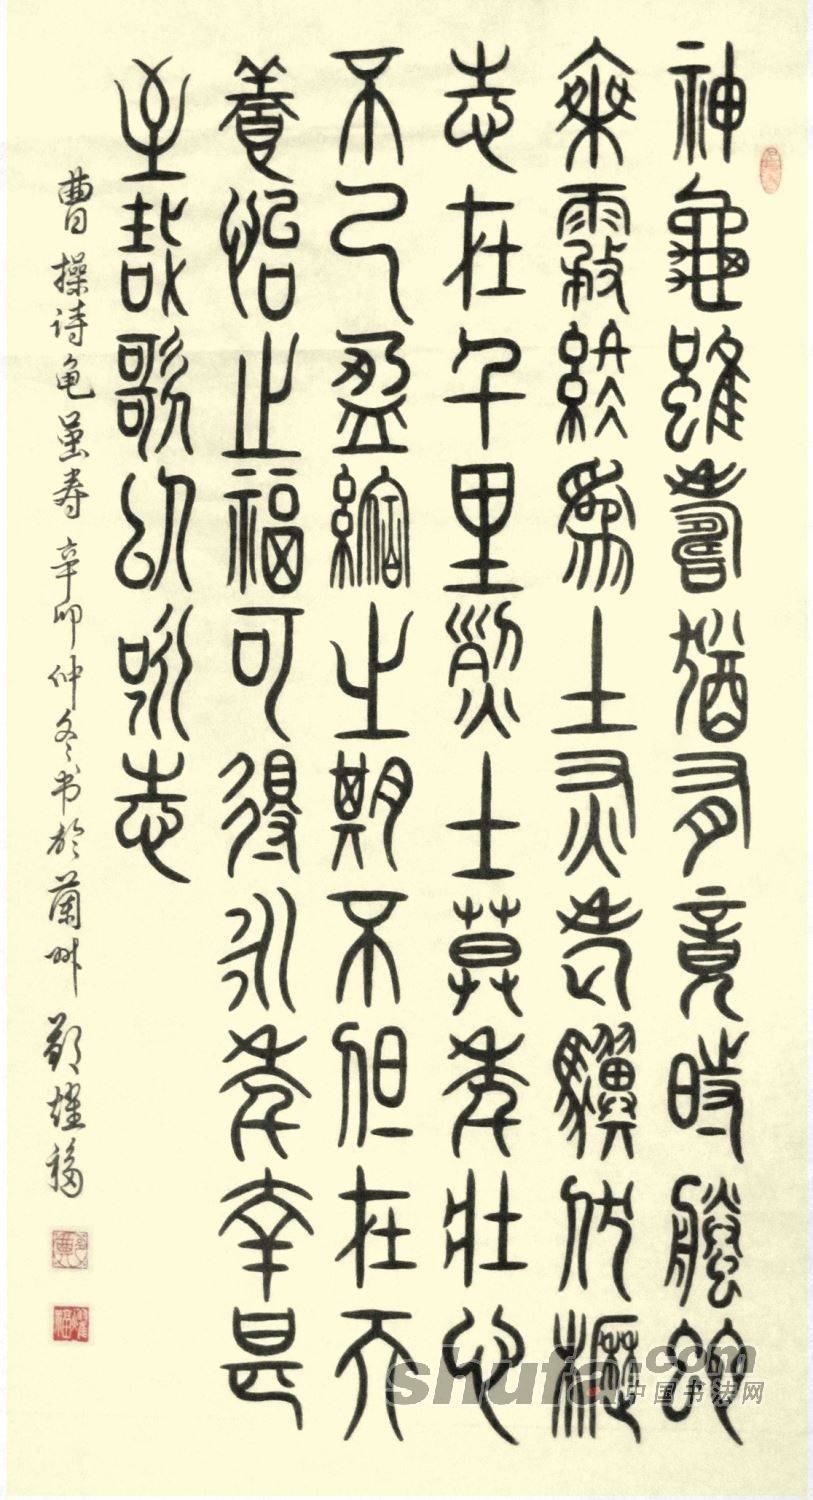 神龜雖壽猶有竟時螣蛇
乘霧終為土灰老驥伏櫪
志在千里烈士莫年壯心
不已盈縮之期不但在天
養怡之福可得永年幸甚
至哉歌以咏志
曹操诗龟虽寿 辛卯仲冬书於蘭州 鄭耀福
shufa.com
中国书法网